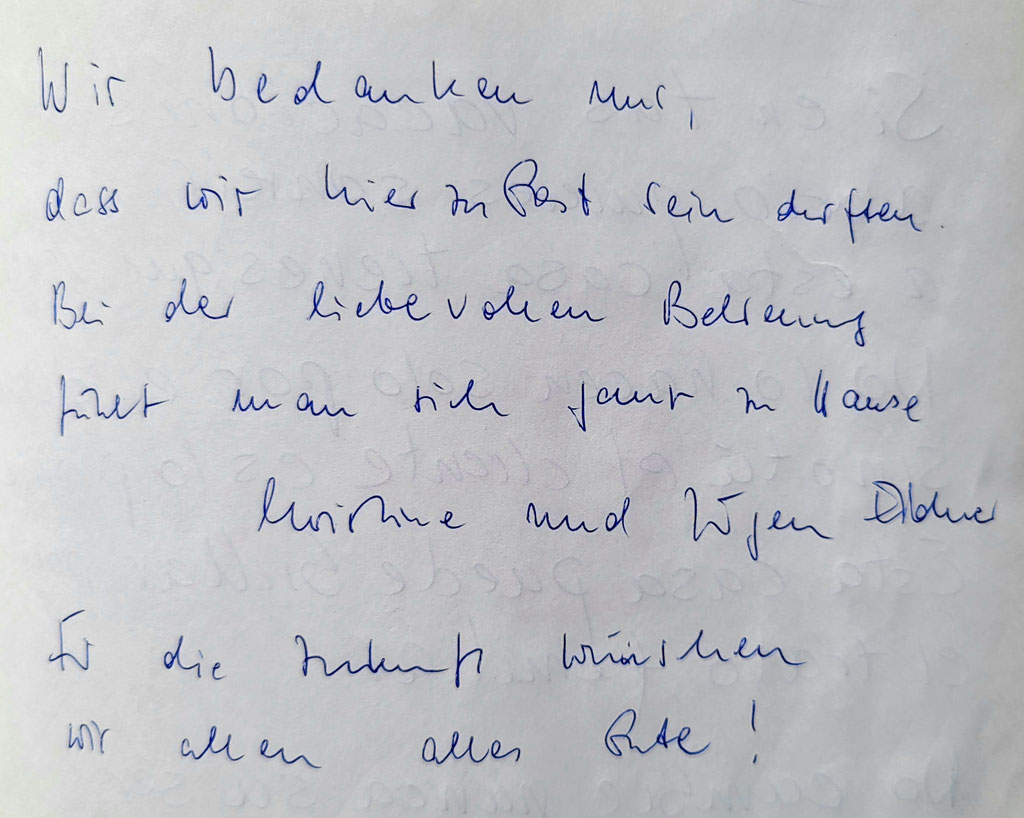 Wir bedanken uns,
dass wir hier zu Gast sein durften.
Bei der liebevollen Betreuung
fühlt man sich ganz zu Hause
Christine und Jürgen
Für die Zukunft wünschen
wir allen alles Gute!